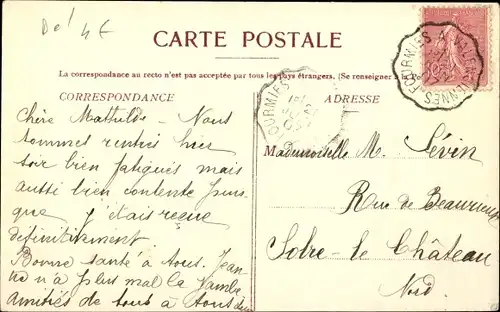 De! 4E
CARTE POSTALE
La correspondance au recto n'est pas acceptée par tous les pays étrangers. (Se renseigner à la Poste)
CORRESPONDANCE
ADRESSE
FOURMIES A VALENCIENNES
OURMIES
Chère Mathilde - Nous
sommes rentrés hier
soir bien fatigués mais
aussi bien contente puis-
que j'étais reçue
définitivement.
Bonne santé à tous. Jean
ne n'a plus mal la jambe
amitiés de tous à tous
Mademoiselle M. Sévin
Rue de Beaurieux
Solre-le Château
Nord